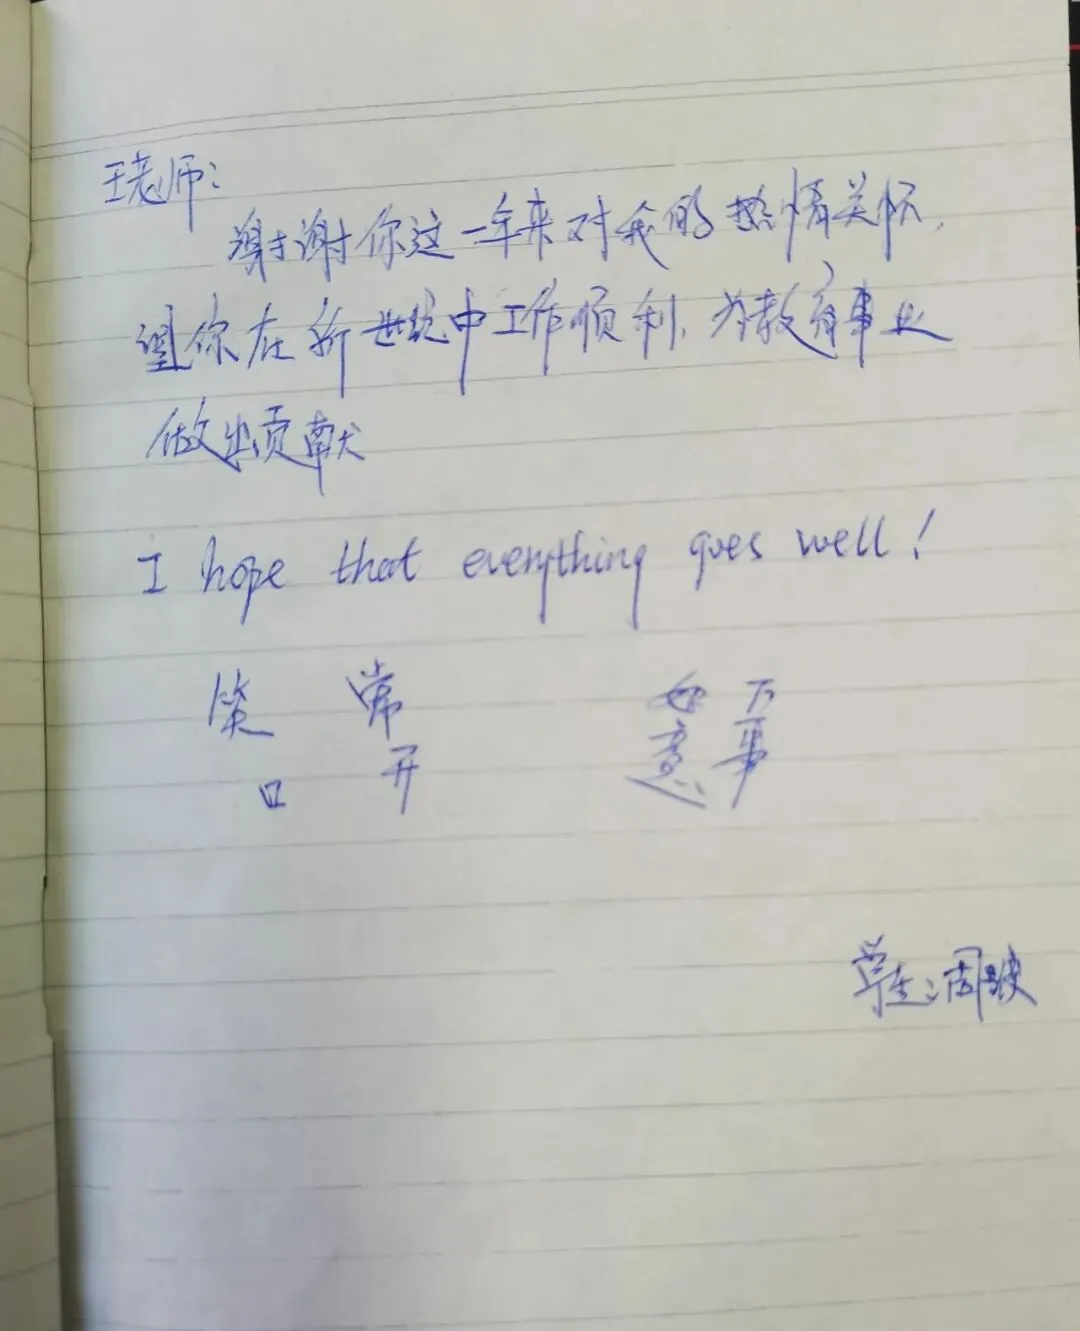 王老师：
谢谢你这一年来对我的热情关怀，
望你在新世纪中工作顺利，为教育事业
做出贡献
I hope that everything goes well!
笑口常开
万事如意
学生：周